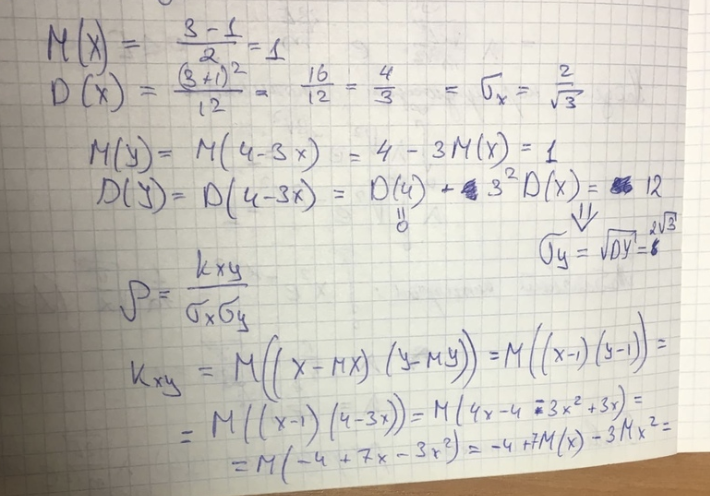 M(X) = (3-1)/2 = 1
D(X) = (3+1)²/12 = 16/12 = 4/3 = σₓ = 2/√3
M(Y) = M(4-3x) = 4 - 3M(X) = 1
D(Y) = D(4-3x) = D(4) + 3² D(X) = 12
|| 0
⇓
σy = √DY = 2√3
ρ = Kxy/(σₓσy)
Kxy = M((X-MX)(Y-MY)) = M((x-1)(y-1)) =
= M((x-1)(4-3x)) = M(4x-4-3x²+3x) =
= M(-4+7x-3x²) = -4+7M(X)-3Mx² =